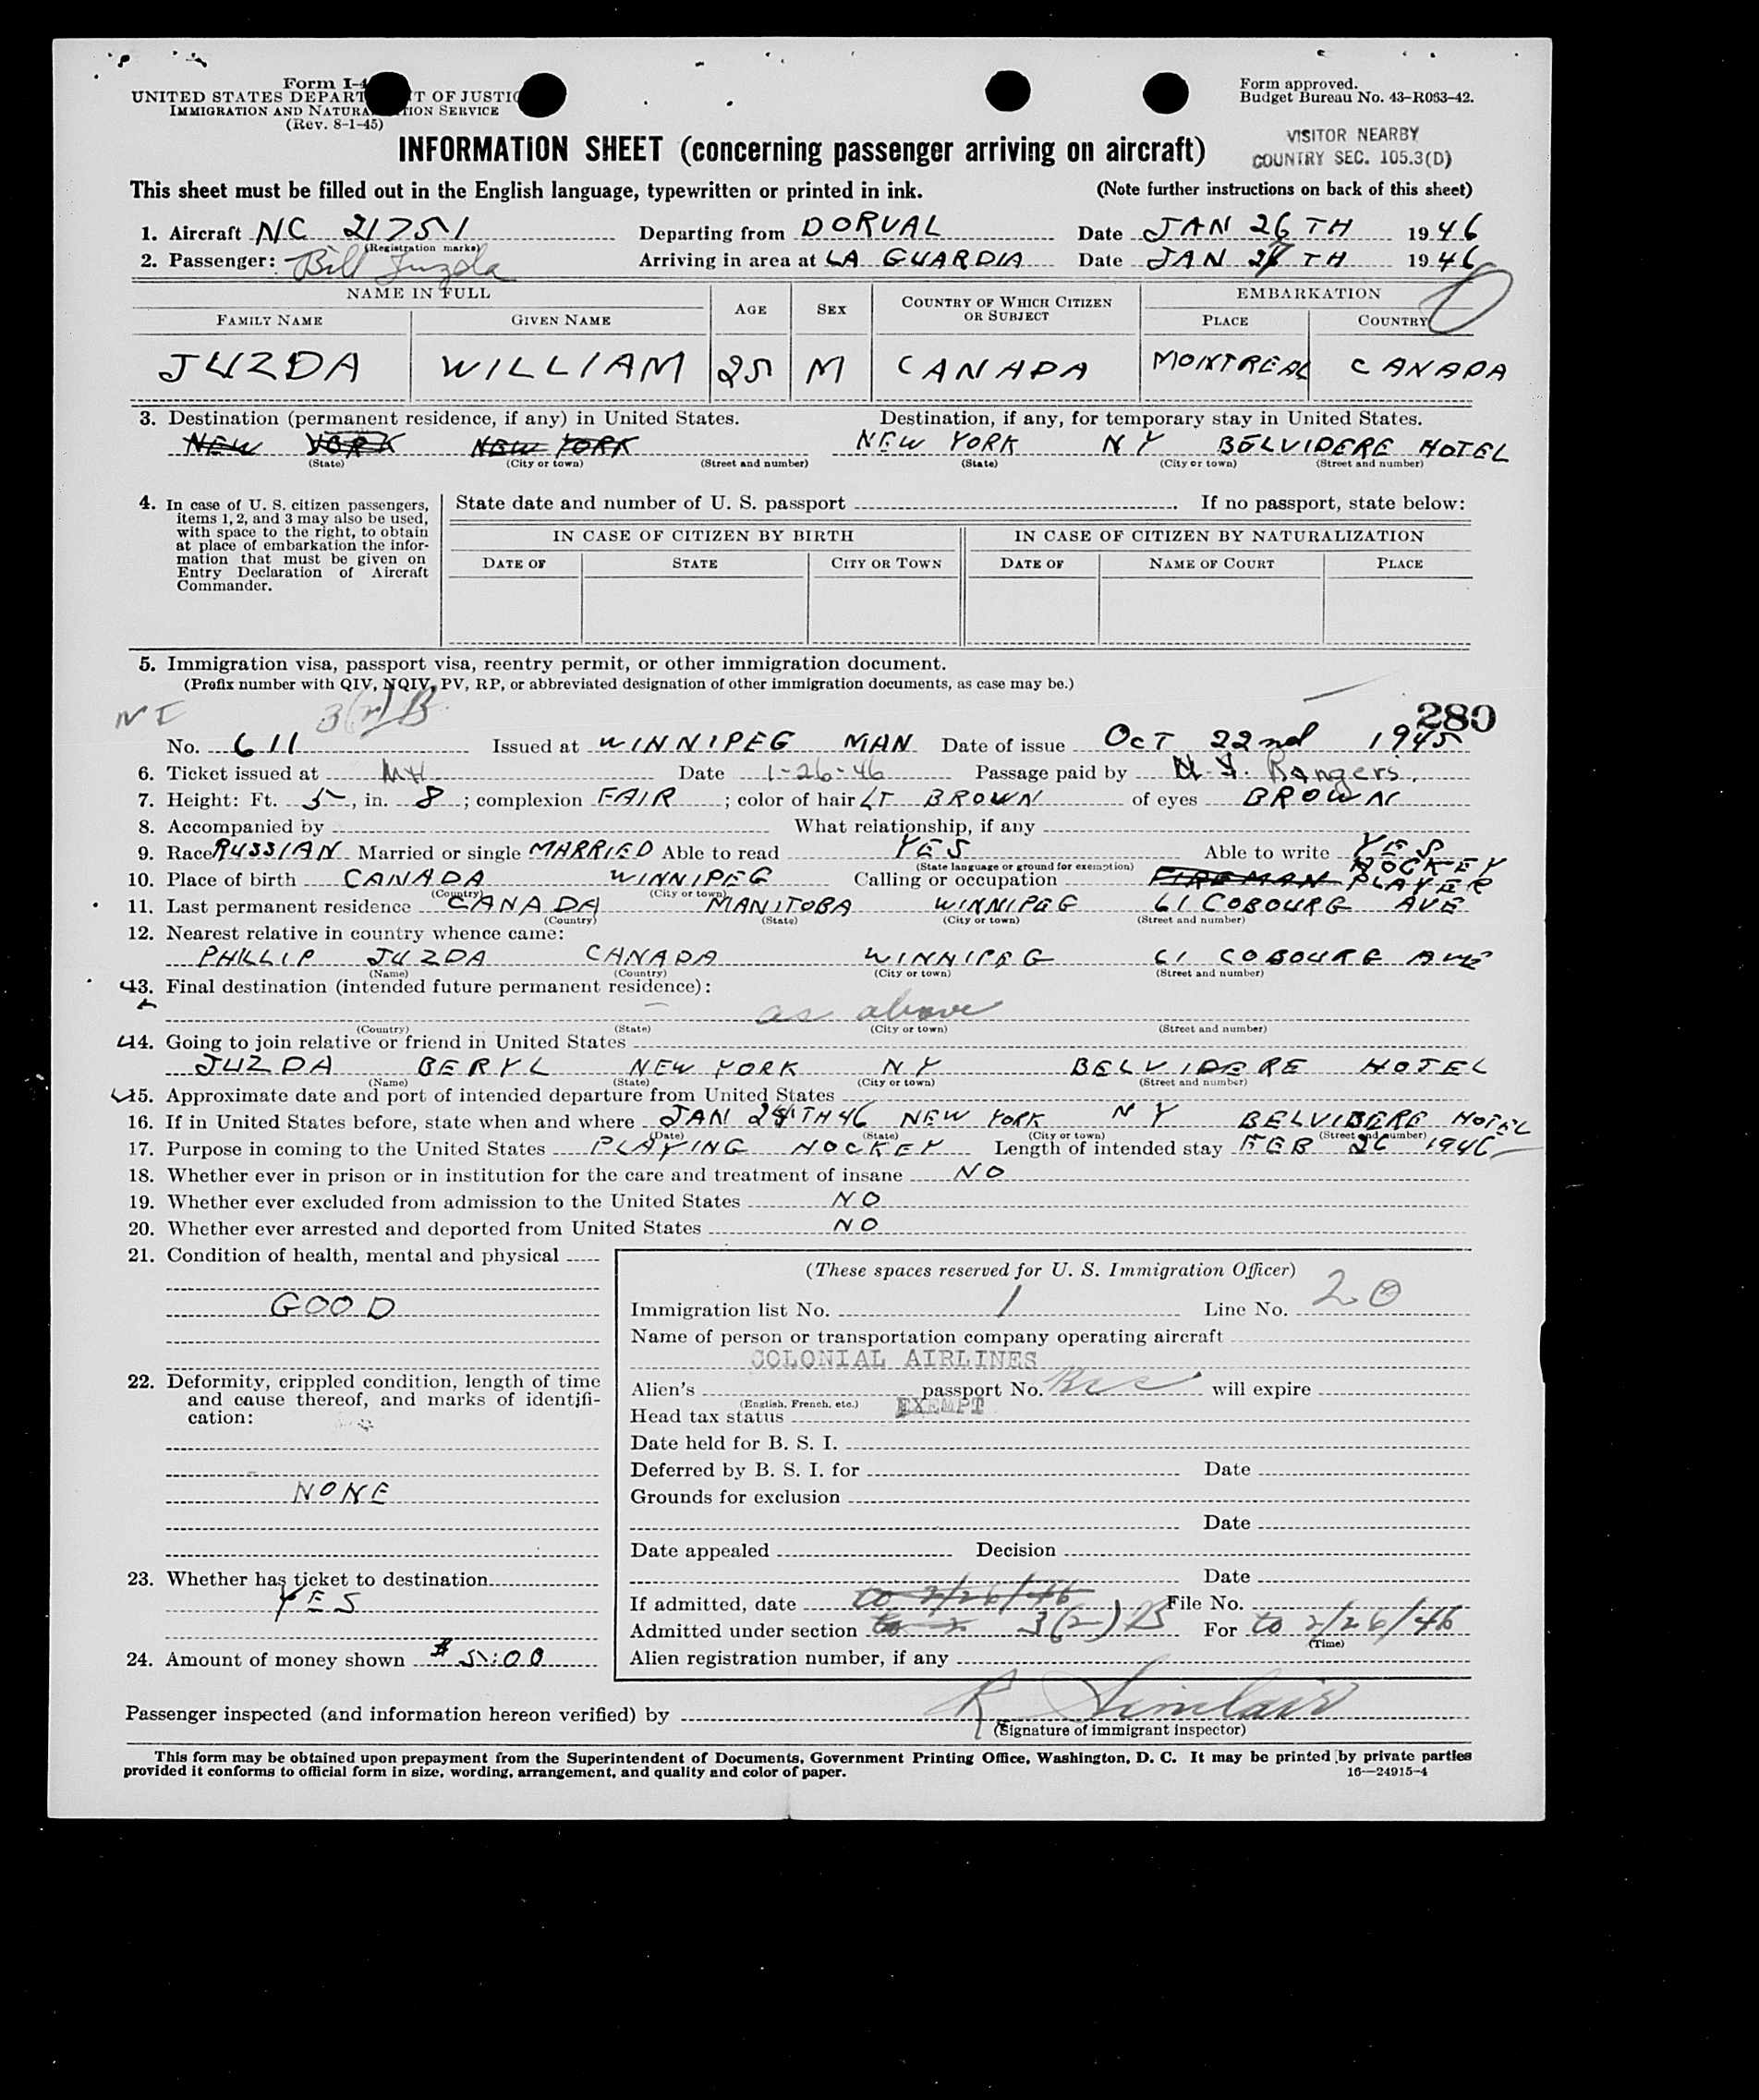 Form I-4
UNITED STATES DEPART T OF JUSTIC
IMMIGRATION AND NATURA TION SERVICE
(Rev. 8-1-45)
Form approved.
Budget Bureau No. 43-R063-42.
INFORMATION SHEET (concerning passenger arriving on aircraft)
VISITOR NEARBY
COUNTRY SEC. 105.3(D)
This sheet must be filled out in the English language, typewritten or printed in ink. (Note further instructions on back of this sheet)
1. Aircraft NC 21751 Departing from DORVAL Date JAN 26 TH 1946
(Registration marks)
2. Passenger: Bill Juzda Arriving in area at LA GUARDIA Date JAN 27 TH 1946
NAME IN FULL AGE SEX COUNTRY OF WHICH CITIZEN OR SUBJECT EMBARKATION
FAMILY NAME GIVEN NAME PLACE COUNTRY
JUZDA WILLIAM 25 M CANADA MONTREAL CANADA
3. Destination (permanent residence, if any) in United States. Destination, if any, for temporary stay in United States.
NEW YORK NEW YORK NEW YORK NY BELVIDERE HOTEL
(State) (City or town) (Street and number) (State) (City or town) (Street and number)
4. In case of U. S. citizen passengers, items 1, 2, and 3 may also be used, with space to the right, to obtain at place of embarkation the information that must be given on Entry Declaration of Aircraft Commander.
State date and number of U. S. passport . If no passport, state below:
IN CASE OF CITIZEN BY BIRTH IN CASE OF CITIZEN BY NATURALIZATION
DATE OF STATE CITY OR TOWN DATE OF NAME OF COURT PLACE
5. Immigration visa, passport visa, reentry permit, or other immigration document.
(Prefix number with QIV, NQIV, PV, RP, or abbreviated designation of other immigration documents, as case may be.)
NI 3(2)B 280
No. 611 Issued at WINNIPEG MAN Date of issue OCT 22nd 1945
6. Ticket issued at MH Date 1-26-46 Passage paid by N.Y. Rangers.
7. Height: Ft. 5, in. 8; complexion FAIR; color of hair LT BROWN of eyes BROWN
8. Accompanied by What relationship, if any
9. Race RUSSIAN Married or single MARRIED Able to read YES Able to write YES
(State language or ground for exemption)
10. Place of birth CANADA WINNIPEG Calling or occupation FIREMAN HOCKEY PLAYER
(Country) (City or town)
11. Last permanent residence CANADA MANITOBA WINNIPEG 61 COBOURG AVE
(Country) (State) (City or town) (Street and number)
12. Nearest relative in country whence came:
PHILLIP JUZDA CANADA WINNIPEG 61 COBOURG AVE
(Name) (Country) (City or town) (Street and number)
13. Final destination (intended future permanent residence):
as above
(Country) (State) (City or town) (Street and number)
14. Going to join relative or friend in United States
JUZDA BERYL NEW YORK NY BELVIDERE HOTEL
(Name) (State) (City or town) (Street and number)
15. Approximate date and port of intended departure from United States
16. If in United States before, state when and where JAN 24TH 46 NEW YORK NY BELVIDERE HOTEL
(Date) (State) (City or town) (Street and number)
17. Purpose in coming to the United States PLAYING HOCKEY Length of intended stay FEB 26 1946
18. Whether ever in prison or in institution for the care and treatment of insane NO
19. Whether ever excluded from admission to the United States NO
20. Whether ever arrested and deported from United States NO
21. Condition of health, mental and physical
GOOD
22. Deformity, crippled condition, length of time and cause thereof, and marks of identification:
NONE
23. Whether has ticket to destination
YES
24. Amount of money shown $5.00
(These spaces reserved for U. S. Immigration Officer)
Immigration list No. 1 Line No. 20
Name of person or transportation company operating aircraft
COLONIAL AIRLINES
Alien's passport No. will expire
(English, French, etc.)
Head tax status EXEMPT
Date held for B. S. I.
Deferred by B. S. I. for Date
Grounds for exclusion
Date
Date appealed Decision
Date
If admitted, date to 2/26/46 File No.
Admitted under section to 2 3(2)B For to 2/26/46
(Time)
Alien registration number, if any
Passenger inspected (and information hereon verified) by R Sinclair
(Signature of immigrant inspector)
This form may be obtained upon prepayment from the Superintendent of Documents, Government Printing Office, Washington, D. C. It may be printed by private parties
provided it conforms to official form in size, wording, arrangement, and quality and color of paper. 16—24915-4